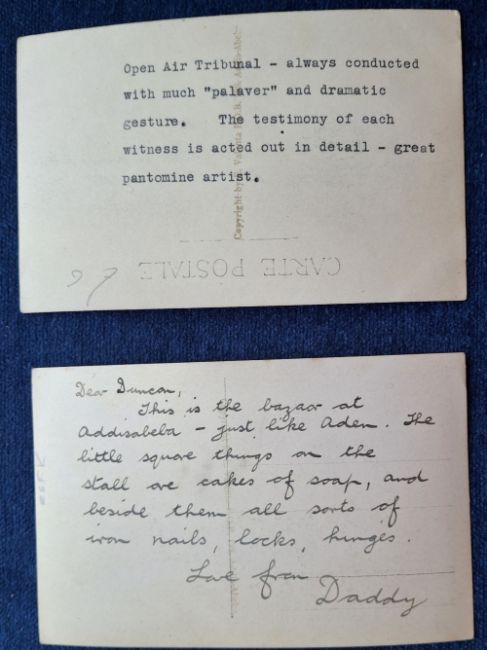 Open Air Tribunal - always conducted
with much "palaver" and dramatic
gesture. The testimony of each
witness is acted out in detail - great
pantomine artist.
Copyright by
CARTE POSTALE
Dear Duncan,
This is the bazaar at
Addisabeba - just like Aden. The
little square things on the
stall are cakes of soap, and
beside them all sorts of
iron nails, locks, hinges.
Love from
Daddy